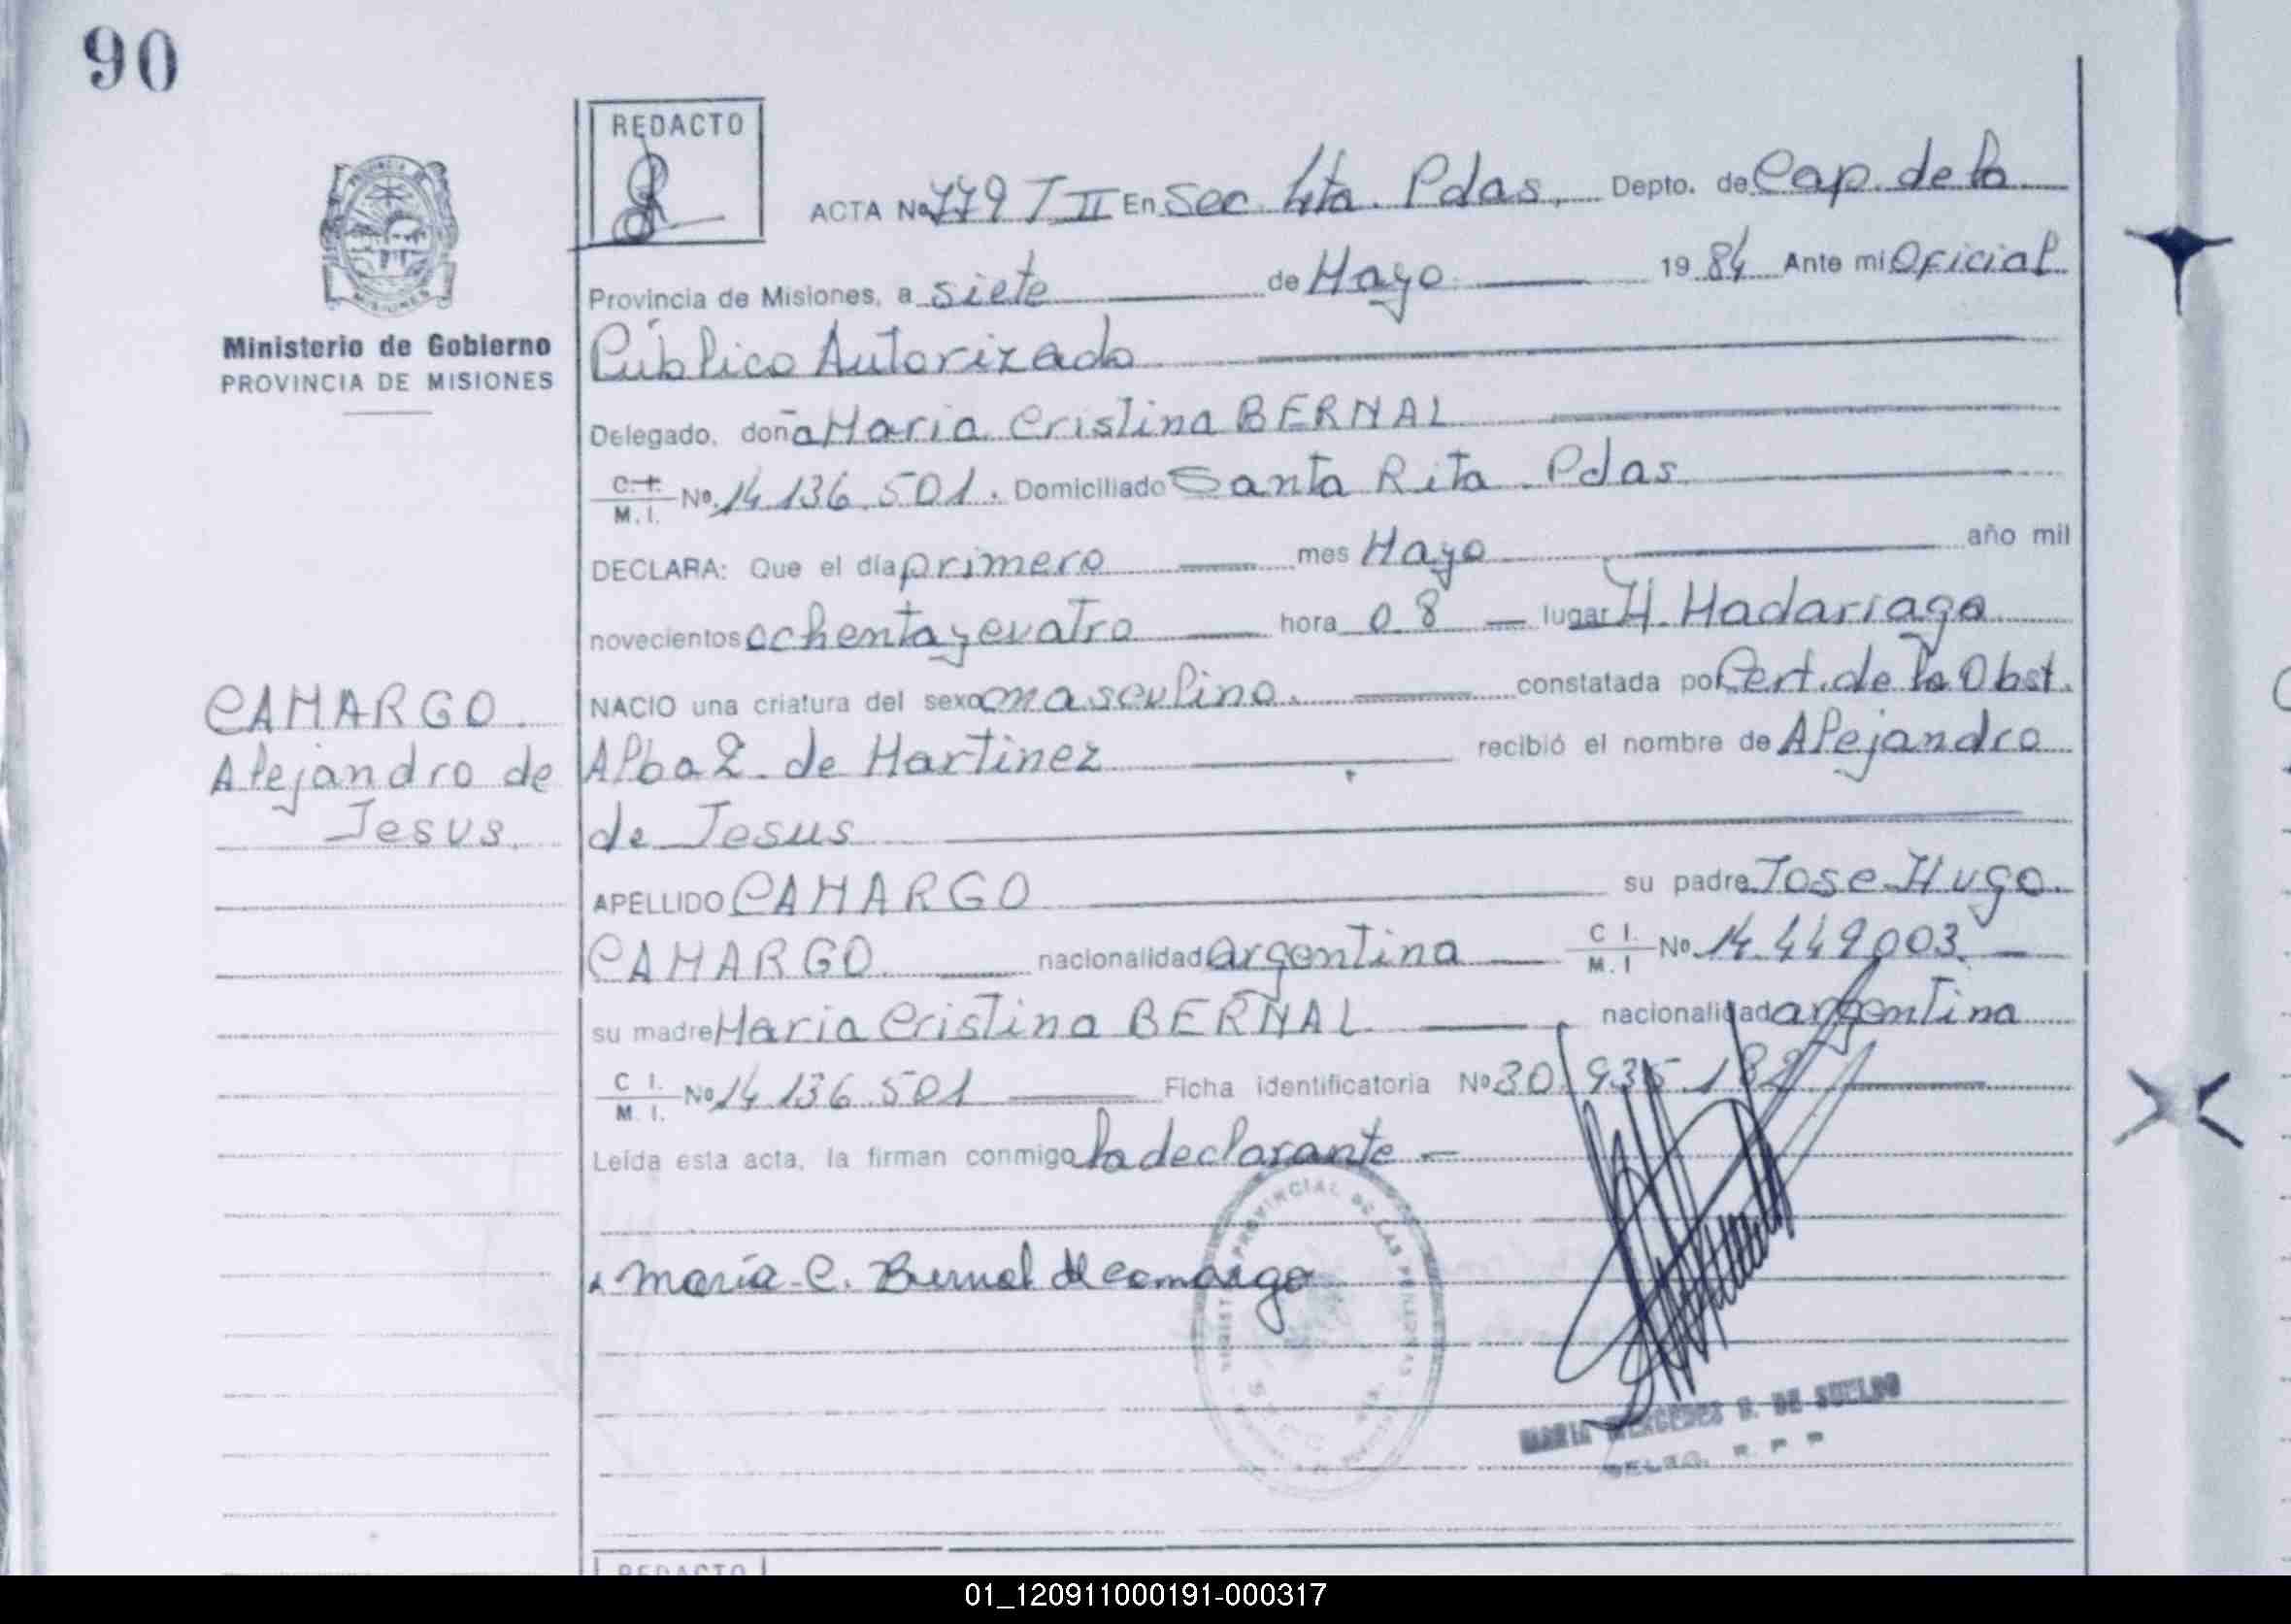 90
REDACTO
ACTA No 779 T II En Sec. 4ta. Pdas, Depto. de Cap. de la
Provincia de Misiones, a siete de Mayo 1984 Ante mi Oficial
Ministerio de Gobierno
PROVINCIA DE MISIONES
Público Autorizado
Delegado, doña Maria Cristina BERNAL
C.I. M.I. No. 14.136.501. Domiciliado Santa Rita - Pdas
DECLARA: Que el día primero mes Mayo año mil
novecientos ochenta y cuatro hora 08 lugar H. Madariaga
NACIO una criatura del sexo masculino. constatada por Cert. de la Obst.
CAMARGO
Alejandro de
Jesus
Alba Z. de Martinez recibió el nombre de Alejandro
de Jesus
APELLIDO CAMARGO su padre Jose Hugo
CAMARGO nacionalidad argentina C I. M. I No. 14.449.003
su madre Maria Cristina BERNAL nacionalidad argentina
C I. M. I. No 14.136.501 Ficha identificatoria No 30.935.182
Leída esta acta, la firman conmigo la declarante
Maria C. Bernal de Camargo
PROVINCIAL DE LAS PERSONAS
MARIA MERCEDES G. DE SUELDO
DELEG. R P P
REDACTO
01_120911000191-000317